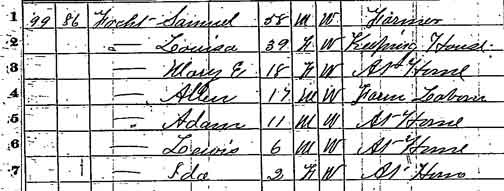 1 99 86 Focht Samuel 58 M W Farmer
2 — Louisa 39 F W Keeping House
3 — Mary E 18 F W At Home
4 — Allen 17 M W Farm Labour
5 — Adam 11 M W At Home
6 — Lewis 6 M W At Home
7 — Ida 2 F W At Home